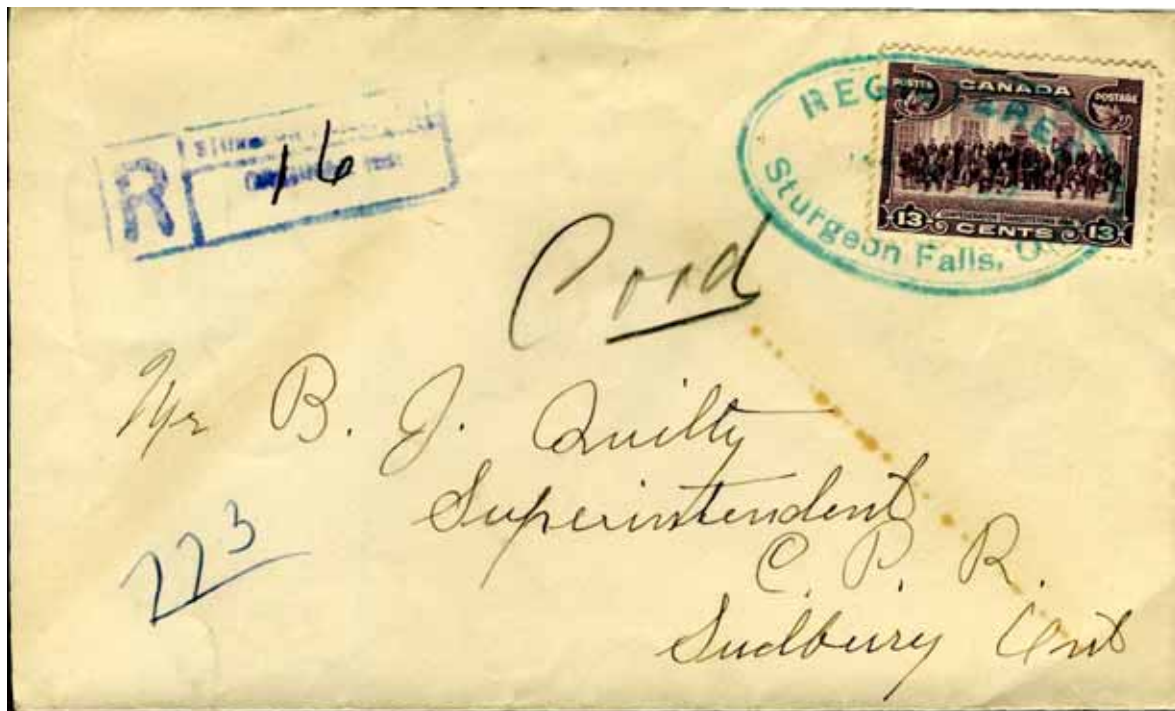 R
16
REGISTERED
Sturgeon Falls,
CANADA
POSTAGE
13 CENTS 13
Mr B. J. Quilty
Superintendent
C. P. R.
Sudbury Ont
223